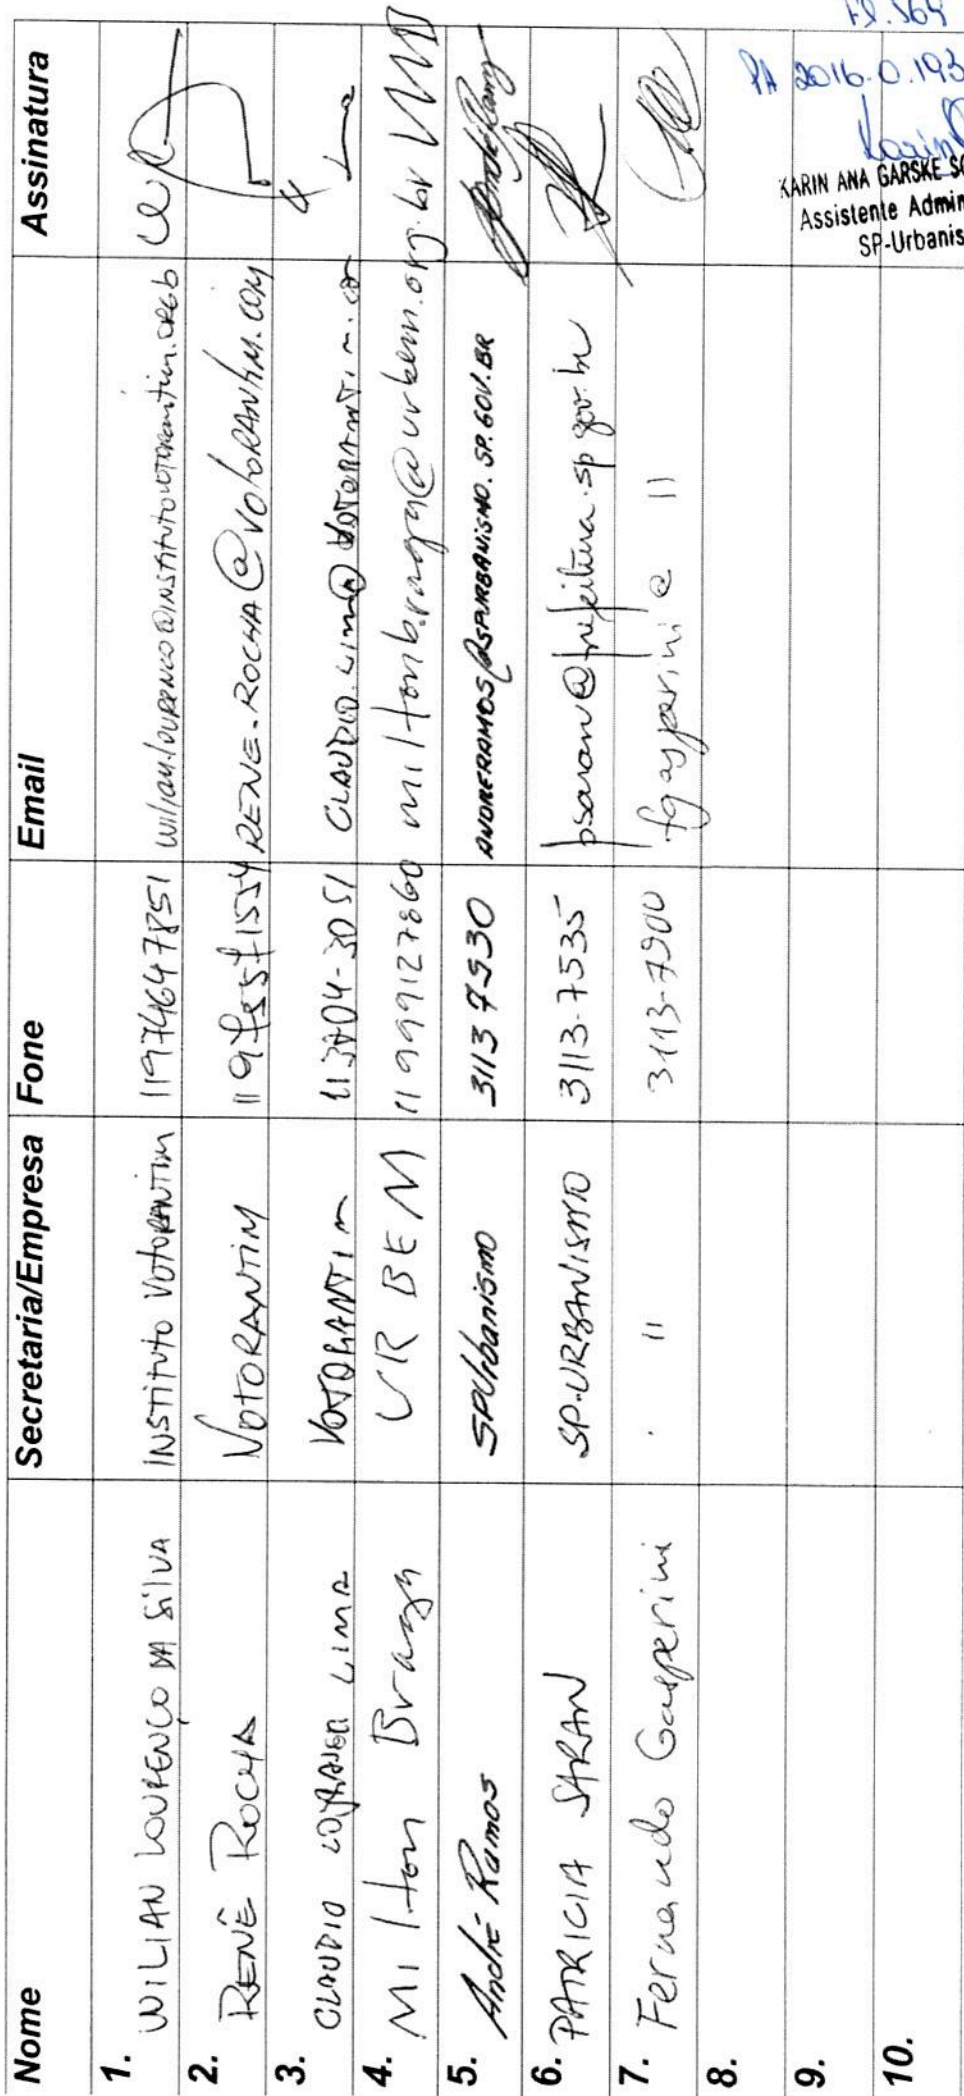 Nome Secretaria/Empresa Fone Email Assinatura
1. WILIAN LOURENÇO DA SILVA INSTITUTO VOTORANTIM 11974647851 wilian.lourenco@institutovotorantim.org.b
2. RENÊ ROCHA VOTORANTIM RENE.ROCHA@VOTORANTIM.COM
3. CLAUDIO LIMA VOTORANTIM 11 3704-3051 CLAUDIO.LIMA@VOTORANTIM.COM
4. Milton Braga URBEM 11 999127860 miltonbraga@urbem.org.br
5. André Ramos SPUrbanismo 3113 7530 ANDRERAMOS@SPURBANISMO.SP.GOV.BR
6. PATRICIA SARAN SP-URBANISMO 3113-7535 psaran@prefeitura.sp.gov.br
7. Fernando Gasperini " 3113-7900 fgasperini@ "
8.
9.
10.
Fl. 564
PA 2016-0.193
Karin
KARIN ANA GARSKE SO
Assistente Admin
SP-Urbanis